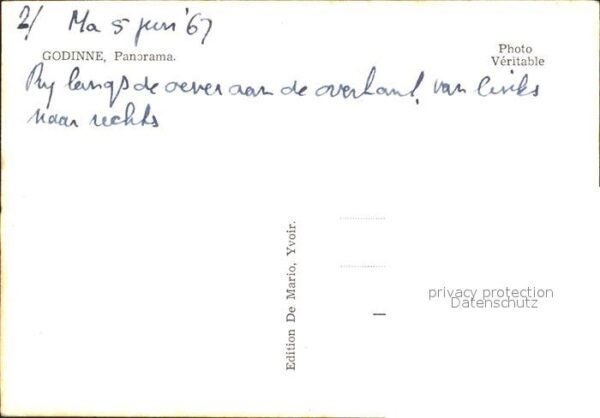 2/ Ma 5 juni '67
GODINNE, Panorama.
Photo
Véritable
Rij langs de oever aan de overkant, van links
naar rechts
Edition De Mario, Yvoir.
privacy protection
Datenschutz